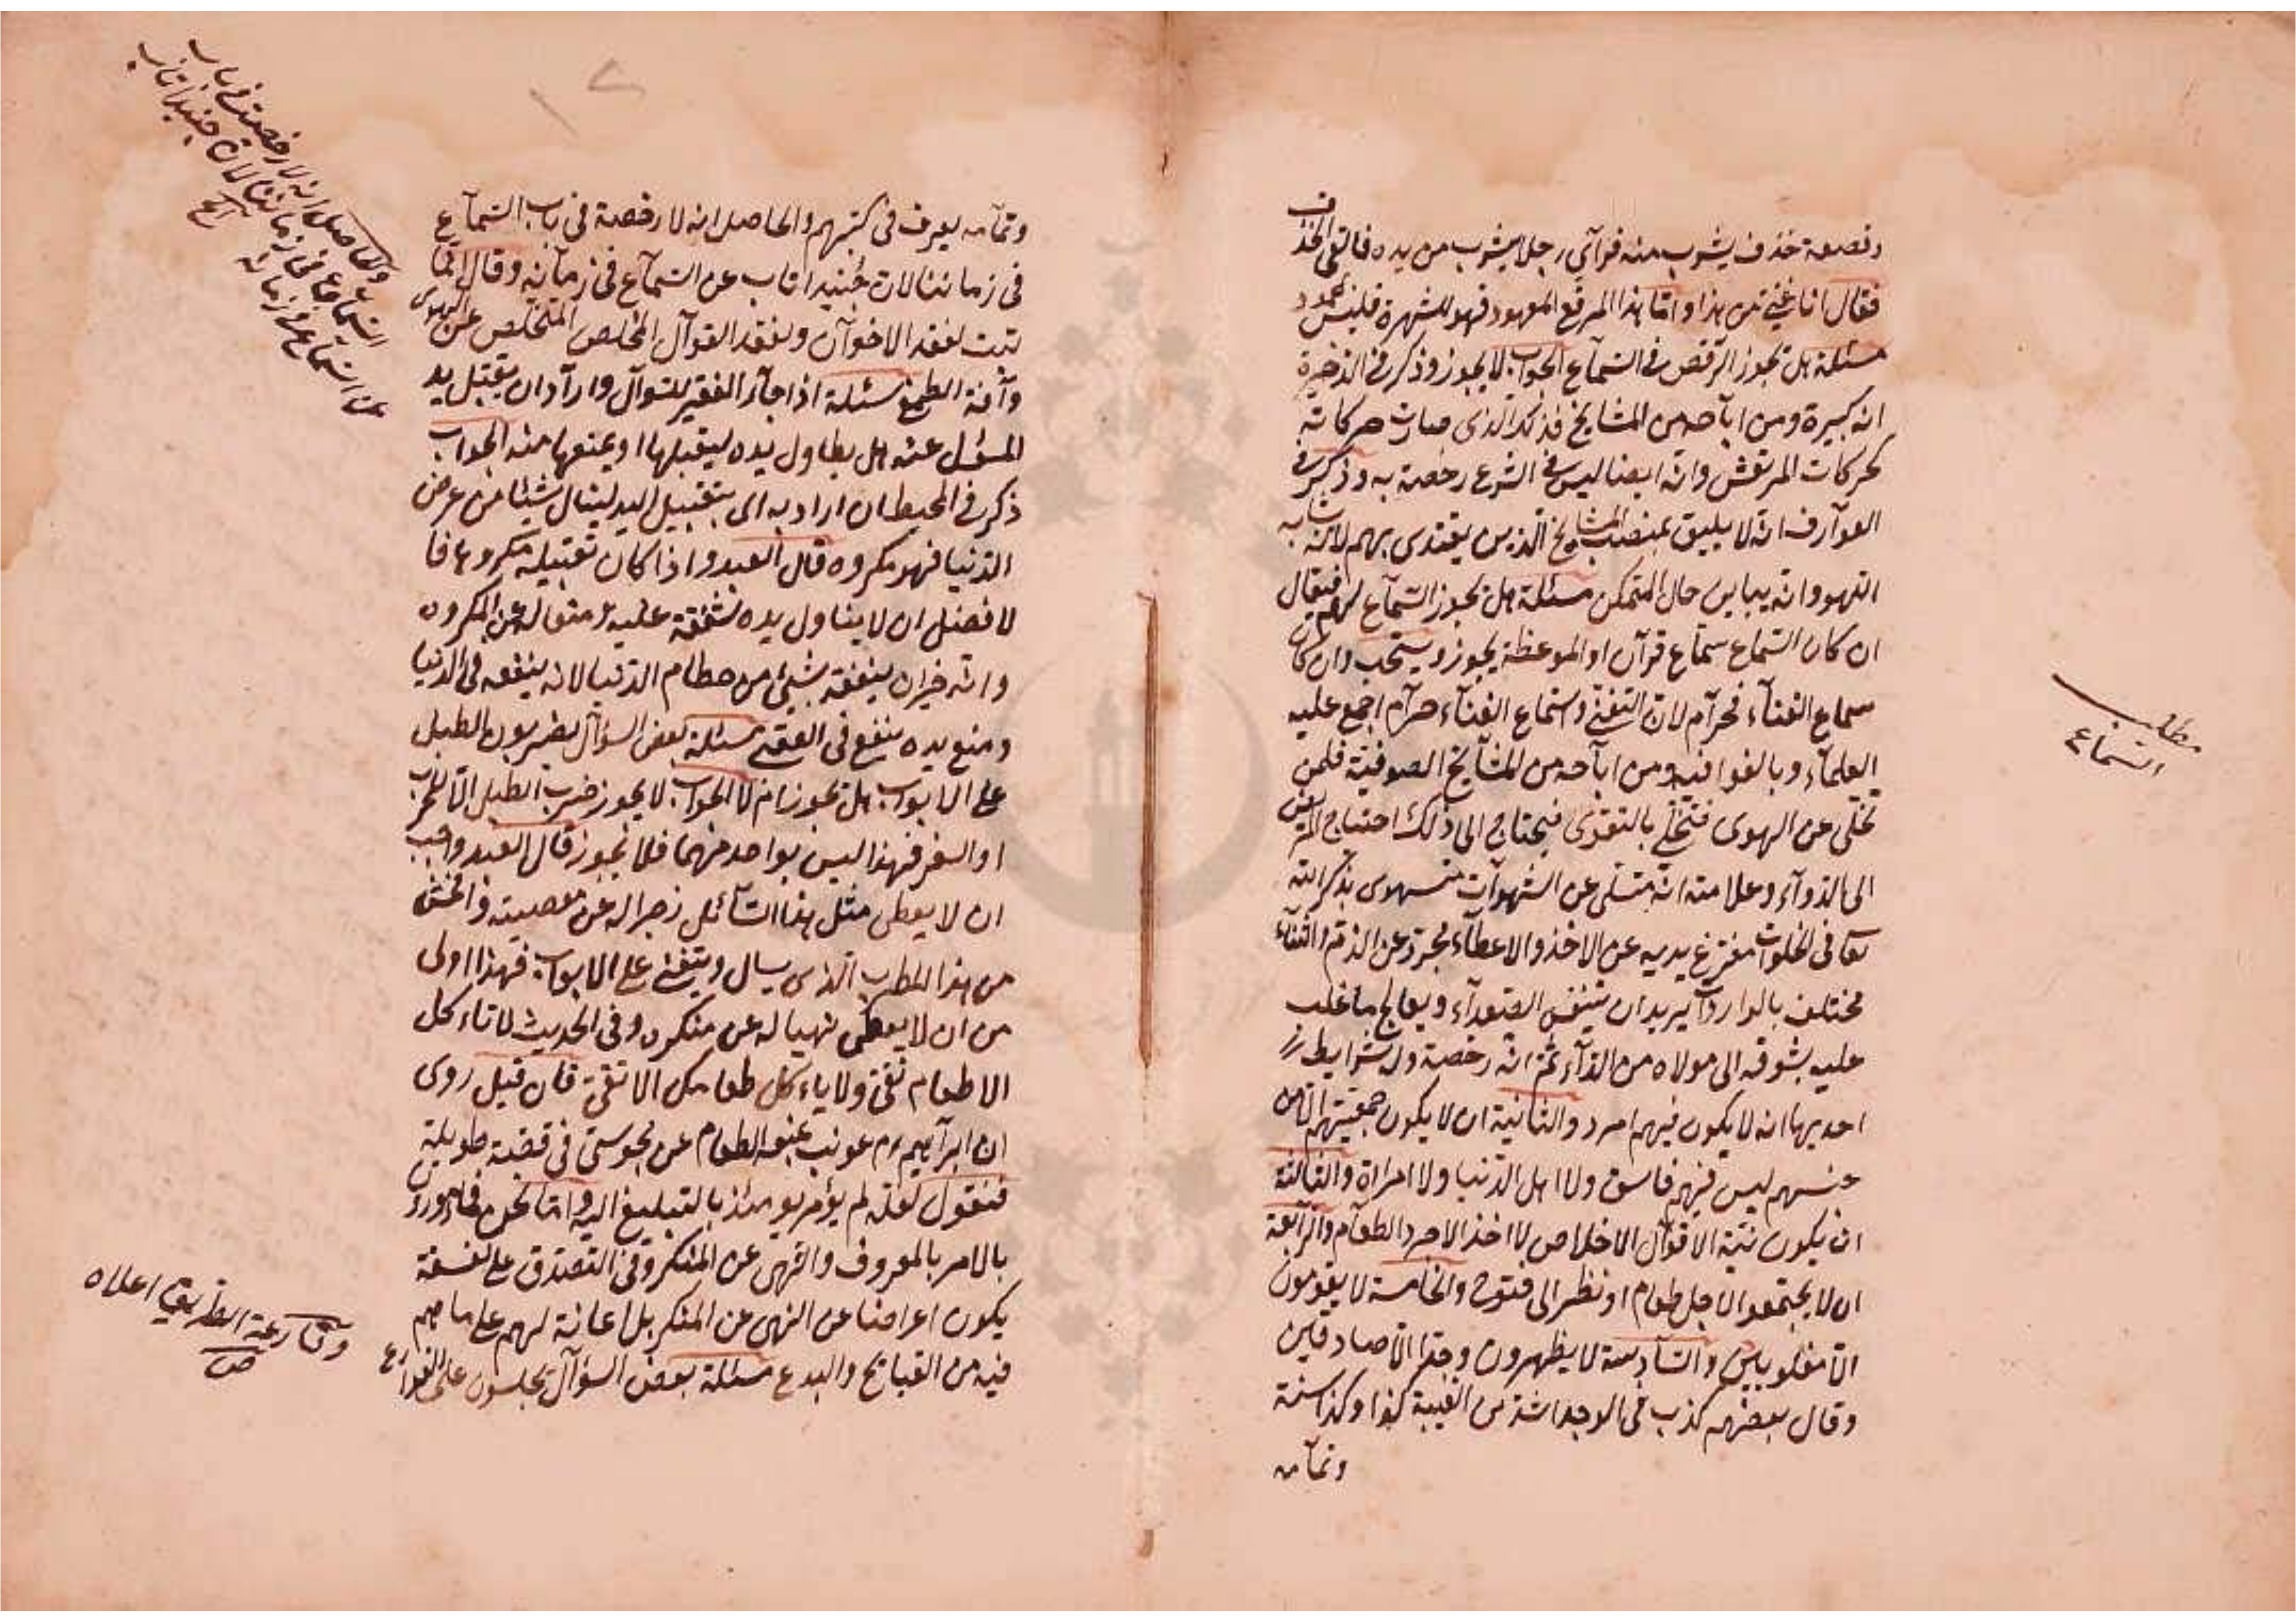 وقصعة خذف يشوب منه فرأى رجلا يشوب من يده فالقى الخذف
فقال انا غنى من هذا واما هذا المرقع المعهود فهو للشهرة فليس بمحمود
مسئلة هل يجوز الرقص فى السماع الجواب لا يجوز وذكر فى الذخيرة
انه كبيرة ومن اباحه من المشايخ فذلك الذى صارت حركاته
كحركات المرتعش وانه ايضا ليس فى الشرع رخصة به وذكر فى
العوارف انه لا يليق بمنصب المشايخ الذين يقتدى بهم لانه يشابه
اللهو وانه يباين حال المتمكن مسئلة هل يجوز السماع لهم فيقال
ان كان السماع سماع قرآن او الموعظة يجوز ويستحب وان كان
سماع الغناء فحرام لان التغنى واستماع الغناء حرام اجمع عليه
العلماء وبالغوا فيه ومن اباحه من المشايخ الصوفية فلمن
تخلى عن الهوى فتحلى بالتقوى فيحتاج الى ذلك احتياج المريض
الى الدواء وعلامته انه متسلى عن الشهوات بذكر الله
تعا فى الخلوات مفرغ يديه عن الاخذ والاعطاء مجرد عن الذم والثناء
مختلف بالوارد يريد ان يتنفس الصعداء ويعالج ما غلب
عليه بشوقه الى مولاه من الداء ثم انه رخصة وله شرايط
احديها انه لا يكون فيهم امرد والثانية ان لا يكون جمعيتهم الا من
جنسهم ليس فيهم فاسق ولا اهل الدنيا ولا امراة والثالثة
ان يكون نية القوال الاخلاص لا اخذ الاجر والطعام والرابعة
ان لا يجتمعوا لاجل طعام او نظر الى فتوح والخامسة لا يقومون
الا مغلوبين والسادسة لا يظهرون وجدا الا صادقين
وقال بعضهم كذب فى الوجد اشد من الغيبة كذا وكذا سنة
وتمامه
مطلب
السماع
وتمامه يعرف فى كتبهم والحاصل انه لا رخصة فى باب السماع
فى زماننا لان جنيدا تاب عن السماع فى زمانه وقال انما
تبت لفقد الاخوان ولفقد القوال المخلص المتخلص عن الهوى
وآفة الطمع مسئلة اذا جاء الفقير للسوال واراد ان يقبل يد
المسؤل عنه هل يطاول يده ليقبلها او يمنعها منه الجواب
ذكر فى المحيط ان اراد به اى بتقبيل اليد لينال شيئا من عرض
الدنيا فهو مكروه قال العبد واذا كان تقبيله مكروها فا
لافضل ان لا يناول يده شفقة عليه ومنعا له عن المكروه
وانه خير ان ينفعه بشئ من حطام الدنيا لانه ينفعه فى الدنيا
ومنع يده ينفع فى العقبى مسئلة بعض السؤال يضربون الطبل
على الابواب هل يجوز ام لا الجواب لا يجوز ضرب الطبل الا للحرب
او السفر فهذا ليس بواحد منهما فلا يجوز قال العبد واجب
ان لا يعطى مثل هذا السائل زجرا له عن معصيته وافحش
من هذا المطرب الذى يسال ويتغنى على الابواب فهذا اولى
من ان لا يعطى نهيا له عن منكره وفى الحديث لا تاء كل
الا طعام تقى ولا ياء كل طعامك الا تقى فان قيل روى
ان ابراهيم ءم عوتب بمنع الطعام عن مجوسى فى قصة طويلة
فنقول لعله لم يؤمر يومئذ بالتبليغ اليه واما نحن فمامورون
بالامر بالمعروف والنهى عن المنكر وفى التصدق على الفسقة
يكون اعراضا عن النهى عن المنكر بل اعانة لهم على ما هم
فيه من القبايح والبدع مسئلة بعض السؤال يجلسون على القوارع
والحاصل انه لا رخصة فى باب
السماع فى زماننا لان جنيدا تاب
عن السماع فى زمانه
الخ
وقارعة الطريق اعلاه
ص